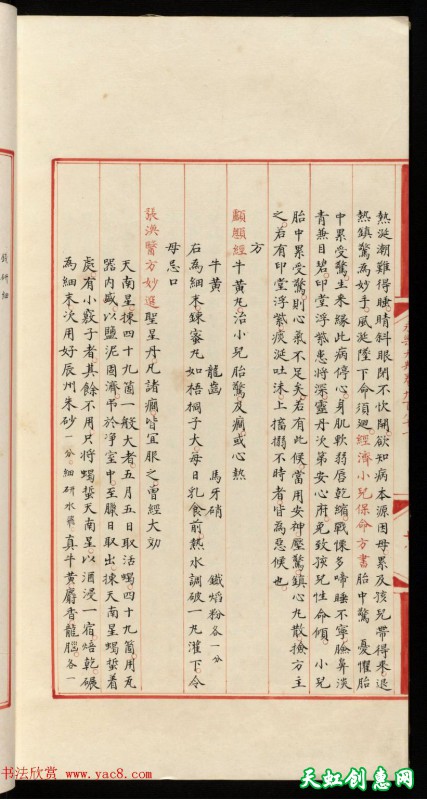 熱涎潮難得睡睛斜眼閉不忺開欲知病本源因母累及孩兒帶得來退
熱鎮驚為妙手風涎墜下命須迴經濟小兒保命方書胎中驚 憂懼胎
中累受驚主來緣此病停心身肌軟弱唇乾縮戰慄多啼睡不寧臉鼻淡
青兼目碧印堂浮紫患將深靈丹次第安心府免致孩兒性命傾 小兒
胎中累受驚則心氣不足矣若有此候當用安神壓驚鎮心丸散撿方主
之若有印堂浮紫痰涎吐沫上搐搦不時者皆為惡候也
方
顱顖經牛黃丸治小兒胎驚及癎或心熱
牛黃 龍齒 馬牙硝 鐵焰粉各一分
右為細末鍊蜜丸如梧桐子大每日乳食前熱水調破一丸灌下令
母忌口
張渙醫方妙選聖星丹凡諸癎皆宜服之曾經大効
天南星揀四十九箇一般大者五月五日取活蠍四十九箇用瓦
器內盛以鹽泥固濟吊於淨室中至臘日取出揀天南星蠍蜇着
處有小竅子者其餘不用只將蠍蜇天南星以酒浸一宿焙乾碾
為細末次用好辰州朱砂一分細研水飛真牛黃麝香龍腦各一
錢研細
书法欣赏 www.yac8.com
天虹创惠网